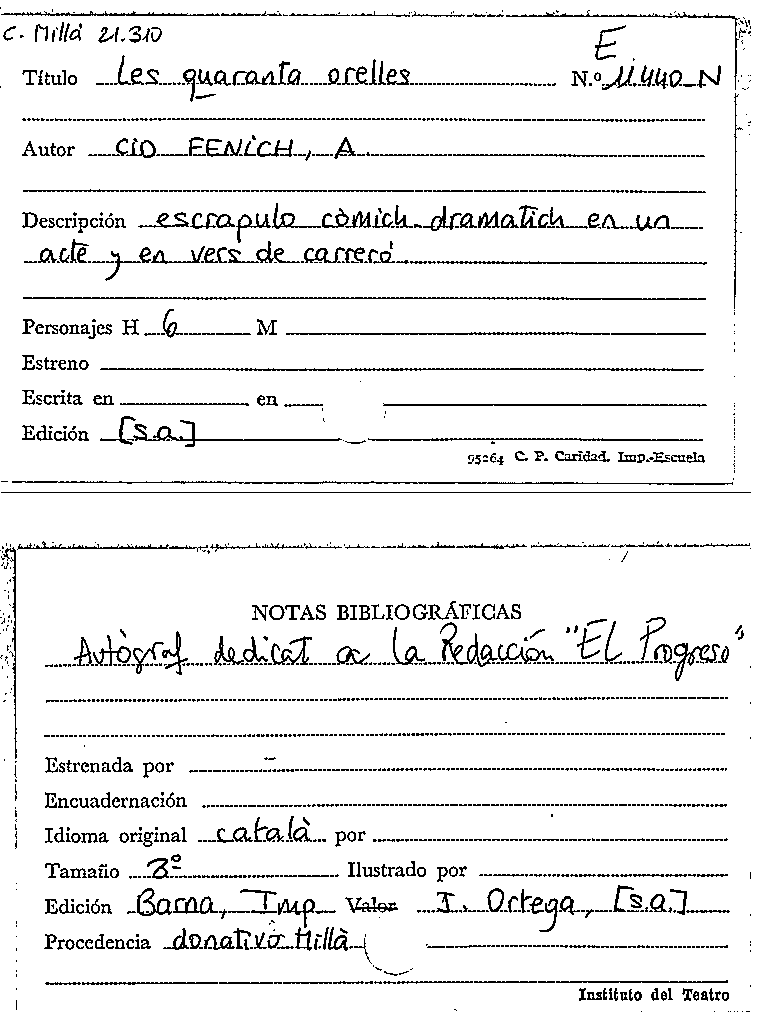 C. Millà 21.310
E
Título Les quaranta orelles N.º 11.440-N
Autor CID FENICH, A.
Descripción escrapulo còmich dramatich en un
acte y en vers de carreró.
Personajes H 6 M
Estreno
Escrita en en
Edición [s.a.]
95264 C. P. Caridad. Imp.-Escuela
NOTAS BIBLIOGRÁFICAS
Autògraf dedicat a la Redacción "EL Progreso"
Estrenada por
Encuadernación
Idioma original català por
Tamaño 8º Ilustrado por
Edición Barna, Imp Valor I. Ortega, [s.a.]
Procedencia donativo Millà
Instituto del Teatro